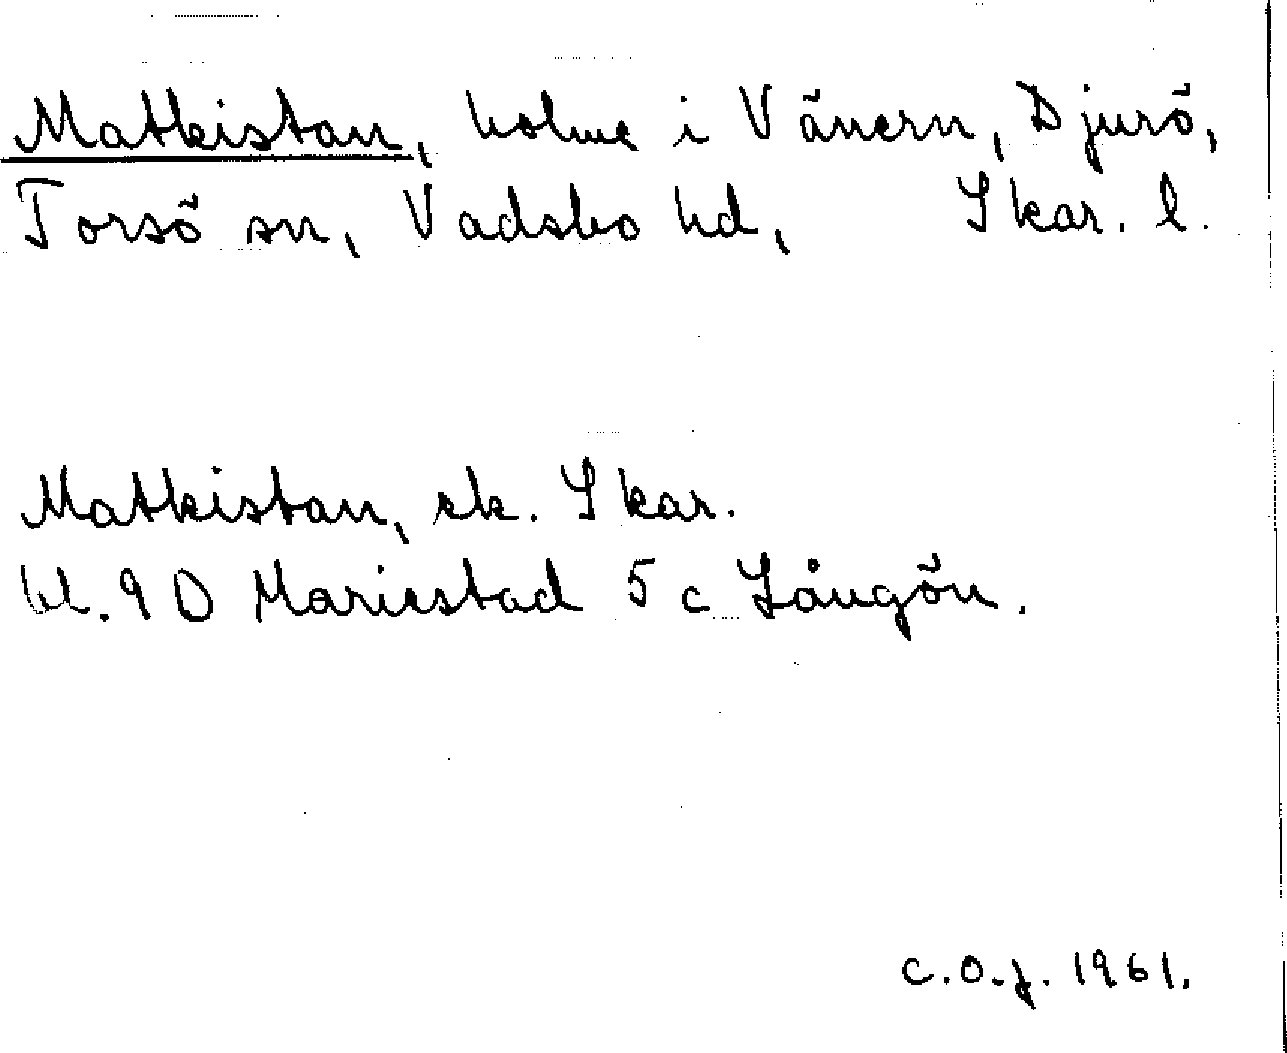 Matkistan, holme i Vänern, Djurö,
Torsö sn, Vadsbo hd, Skar. l.
Matkistan, ek. Skar.
bl. 9 D Mariestad 5 c Långön.
C.O.J. 1961.